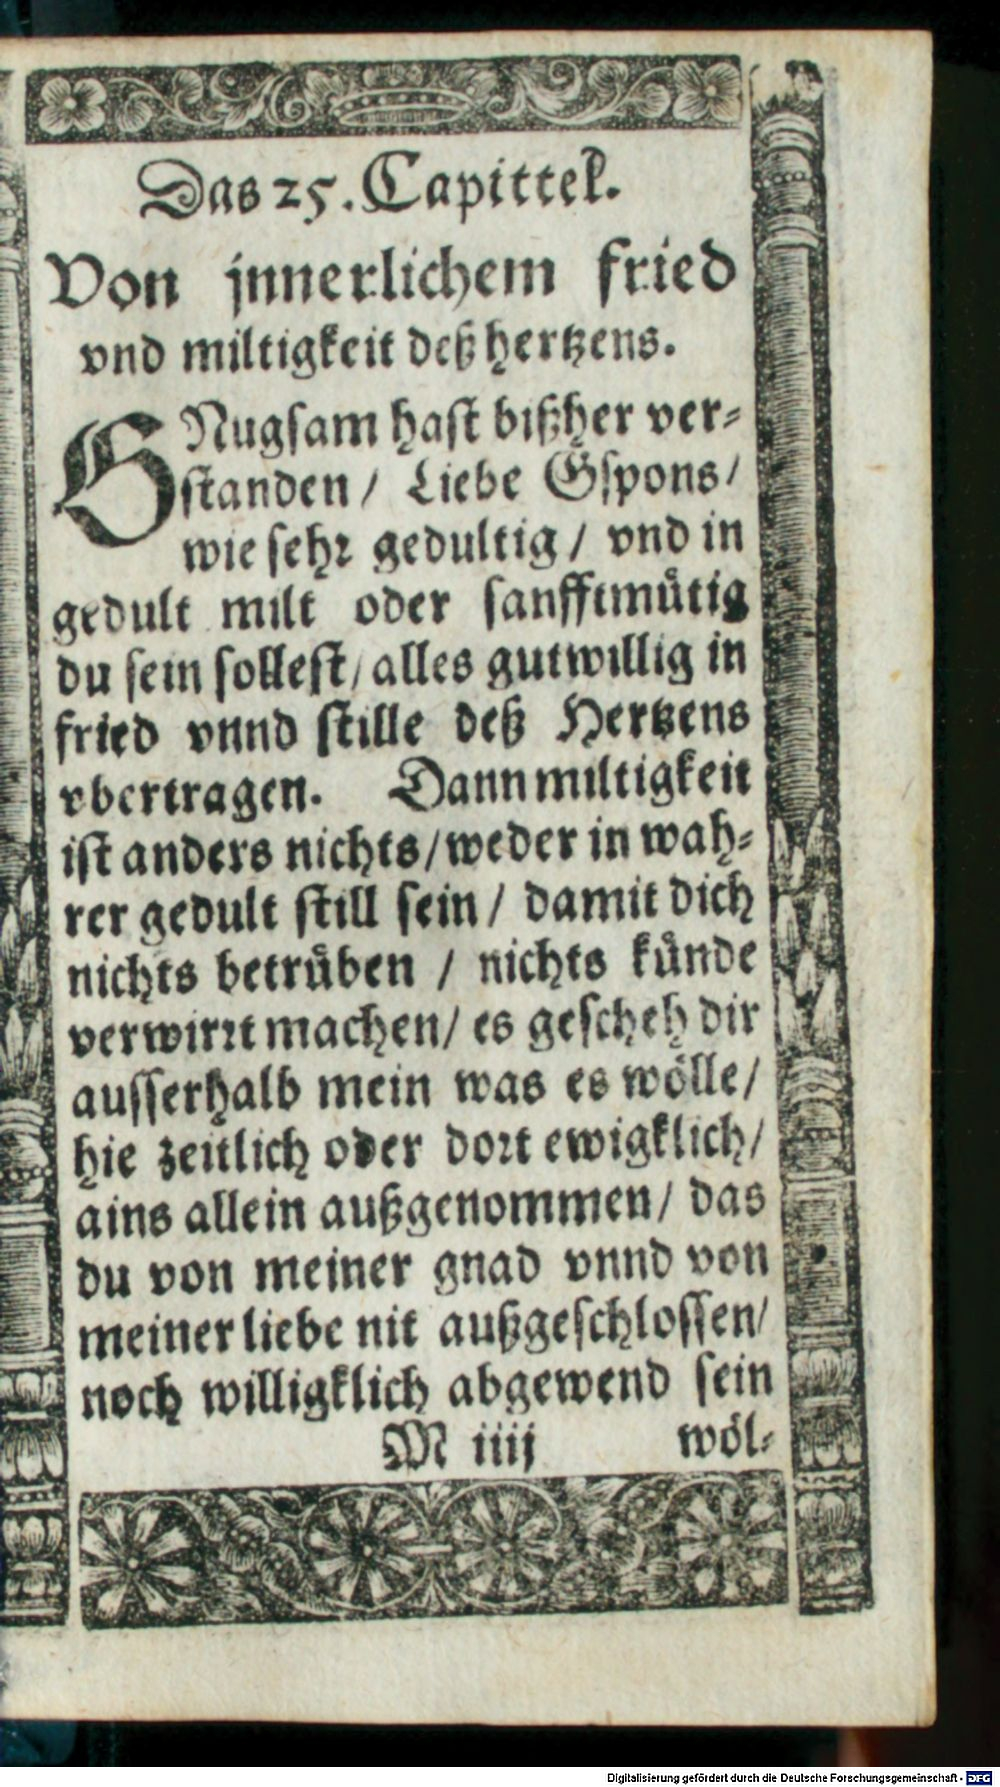 Das 25. Capittel.
Von jnnerlichem fried
vnd miltigkeit deß hertzens.
GNugsam hast bißher ver-
standen / Liebe Gspons /
wie sehr gedultig / vnd in
gedult milt oder sanfftmütig
du sein sollest / alles gutwillig in
fried vnnd stille deß Hertzens
vbertragen. Dann miltigkeit
ist anders nichts / weder in wah-
rer gedult still sein / damit dich
nichts betrüben / nichts künde
verwirrt machen / es gescheh dir
ausserhalb mein was es wölle /
hie zeitlich oder dort ewigklich /
ains allein außgenommen / das
du von meiner gnad vnnd von
meiner liebe nit außgeschlossen /
noch willigklich abgewend sein
M iiij wöl-
Digitalisierung gefördert durch die Deutsche Forschungsgemeinschaft - DFG